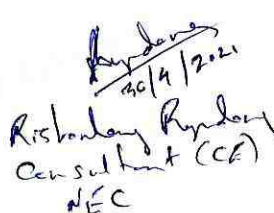 Ryndong
30/4/2021
Rishanlang Ryndong
Consultant (CE)
NEC